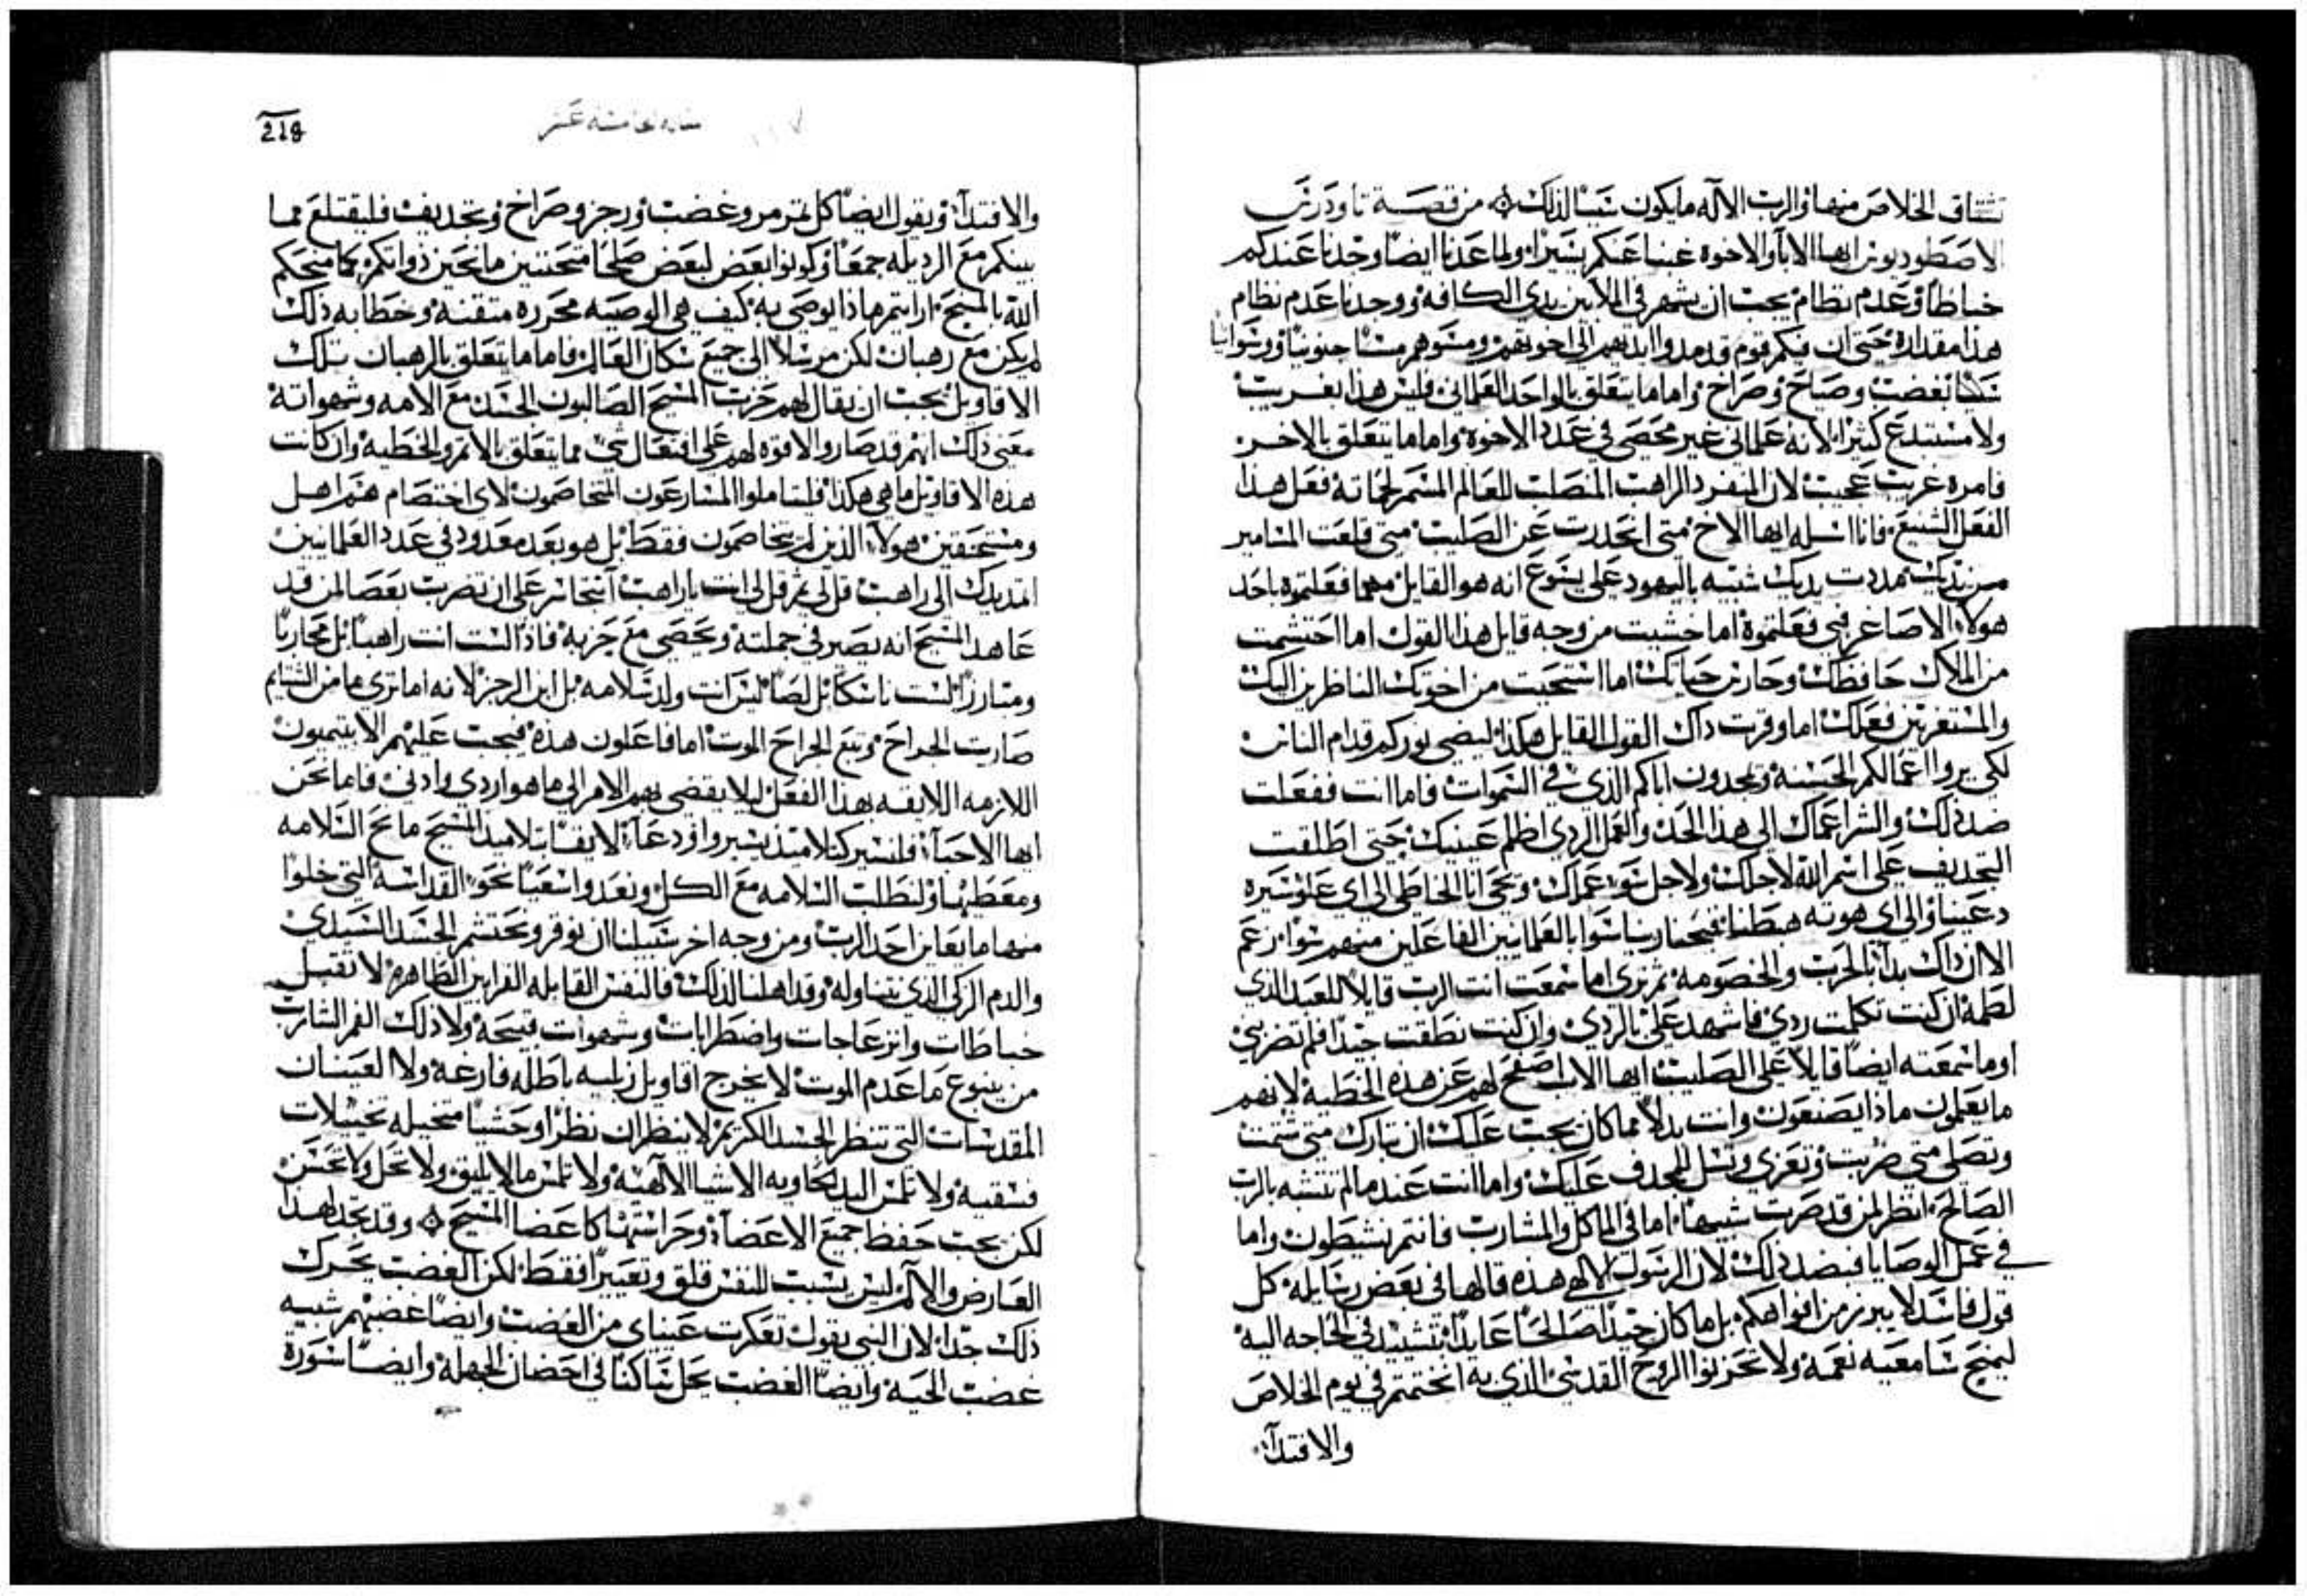 نشتاق الخلاص منها والرب الاله ما يكون سببا لذلك من قصة تاودرس
الاصطوديوتي ايها الابا والاخوة غبنا عنكم يسيرا ولما عدنا ايضا وجدنا عندكم
خباطا وعدم نظام يجب ان يشهر في الملا بين يدي الكافه ووجدنا عدم نظام
هذا مقداره حتي ان فيكم قوم قد مدوا ايديهم الي اخوتهم ومسوهم مسا جنونيا
بغضب وصياح وصراخ واما ما يتعلق بالواحد العلماني فليس هذا بغريب
ولا مستبدع كثيرا لانه علماني غير محصي في عدد الاخوة واما ما يتعلق بالاخر
فامره غريب عجيب لان المنفرد الراهب المنصلب للعالم المسمر لحماته فعل هذا
الفعل الشنيع فانا اسله ايها الاخ متي انحدرت عن الصليب متي قلعت المسامير
من يديك مددت يديك شبيه باليهود علي يسوع انه هو القايل مهما فعلتموه باحد
هولاء الاصاغر في فعلتموة اما خشيت من وجه قايل هذا القول اما احتشمت
من الملاك حافظك وحارس حياتك اما استحيت من اخوتك الناظرين اليك
والمستغربين فعلك اما وقرت داك القول القايل هكذا ليضي نوركم قدام الناس
لكي يروا اعمالكم الحسنه ويمجدون اباكم الذي في السموات فاما انت ففعلت
ضد ذلك والشر اعماك الي هذا الحد والعمل الردي اظلم عينيك حتي اطلقت
التجديف علي اسم الله لاجلك ولاجل سوء عملك ويحي انا الخاطي الي اي علو سيره
دعينا والي اي هوته هبطنا فيحنا رسا سوا بالعلمانيين الفاعلين منهم سوا زعم
الا ان داك بدا بالحرب والخصومه ثم تري اما سمعت انت الرب قايلا للعبد الذي
لطمه ان كنت تكلمت ردي فاشهد علي بالردي وان كنت نطقت جيدا فلم تضربني
اوما سمعته ايضا قايلا علي الصليب ايها الاب اصفح لهم عن هذه الخطية لانهم
ما يعلمون ماذا يصنعون وانت بدلا مما كان يجب عليك ان تبارك متي شتمت
وتصلي متي ضربت وتعزي وتسل للمجدف عليك واما انت عند ما لم تتشبه بالرب
الصالح انظر لمن قد صرت شبيها اما في الماكل والمشارب فانتم نشيطون واما
في عمل الوصايا فبضد ذلك لان الرسول الالهي هذه قالها في بعض رسايله كل
قول فاسد لا يبرز من افواهكم بل ما كان جيدا صالحا عايدا بتشييد في الحاجه اليه
ليمنح سامعيه نعمه ولا تحزنوا الروح القدسي الذي به انختمتم في يوم الخلاص
والافتدآ
218
مقاله الخامسه عشر
والافتدآ ويقول ايضا كل تمرمر وغضب ورجز وصراخ وتجديف فليقتلع مما
بينكم مع الرديله جمعا وكونوا بعض لبعض صلحا متحننين مانحين ذواتكم كما منحكم
الله بالمسيح ارايتم ماذا يوصي به كيف هي الوصيه محرره متقنه وخطابه ذلك
لم يكن مع رهبان لكن مرسلا الي جميع سكان العالم فاما ما يتعلق بالرهبان تلك
الاقاويل يجب ان يقال لهم حزب المسيح الصالبون الجسد مع الامه وشهواته
معني ذلك انهم قد صاروا لا قوه لهم علي افتعال شي مما يتعلق بالاثم والخطيه وان كانت
هذه الاقاويل ما هي هكذا فليتاملوا المتسارعون المتخاصمون لاي اختصام هم اهل
ومستحقين هولاء الذين لم يتخاصمون فقط بل هو بعد معدود في عدد العلمانيين
امتد يدك الي راهب قل لي ثم قل لي انت ياراهب اتتجاسر علي ان تضرب بعصا لمن قد
عاهد المسيح انه يصير في جملته ويحصي مع حزبه فاذا لست انت راهبا بل محاربا
ومبارزا لست ناسكا بل لصا ليس انت ولد سلامه بل ابن الرجز لانه اما تري ما من الشتايم
صارت الجراح وتبع الجراح الموت اما فاعلون هذه فيجب عليهم الابتيميون
اللازمه اللايقه بهذا الفعل ليلا يفضي بهم الامر الي ما هو اردي وادني فاما نحن
ايها الاحباء فلنسير كتلاميذ يسير وافر دعآ لايقا بتلاميذ المسيح مانح السلامه
ومعطيها ولنطلب السلامه مع الكل ونعدوا سعيا نحو القداسه التي خلوا
منها ما يعاين احد الرب ومن وجه اخر سبيلنا ان نوقر ونحتشم الجسد السيدي
والدم الزكي الذي نتناوله وقد اهلنا لذلك فالنفس القابله القرابين الطاهره لا تقبل
خباطات وانزعاجات واضطرابات وشهوات قبيحه ولا ذلك الفم الشارب
من ينبوع ما عدم الموت لا يخرج اقاويل باطله فارغه ولا العينان
المقدسات التي تنظر الجسد الكريم لا ينظران نظرا وحشيا متخيله تخييلات
فسقيه ولا تلمس اليد الحاويه الاشيا الالهيه ولا تلمس مالا يليق ولا تحل ولا تحسن
لكن يجب حفظ جميع الاعضآ وحراستها كاعضا المسيح وقد نجد هذا
العارض والالم ليس يسبب للنفس قلق وتعييرا فقط لكن الغضب يحرك
ذلك جدا لان النبي يقول تعكرت عيناي من الغضب وايضا غضبهم شبيه
غضب الحيه وايضا الغضب يحل ساكنا في احضان الجهله وايضا سورة